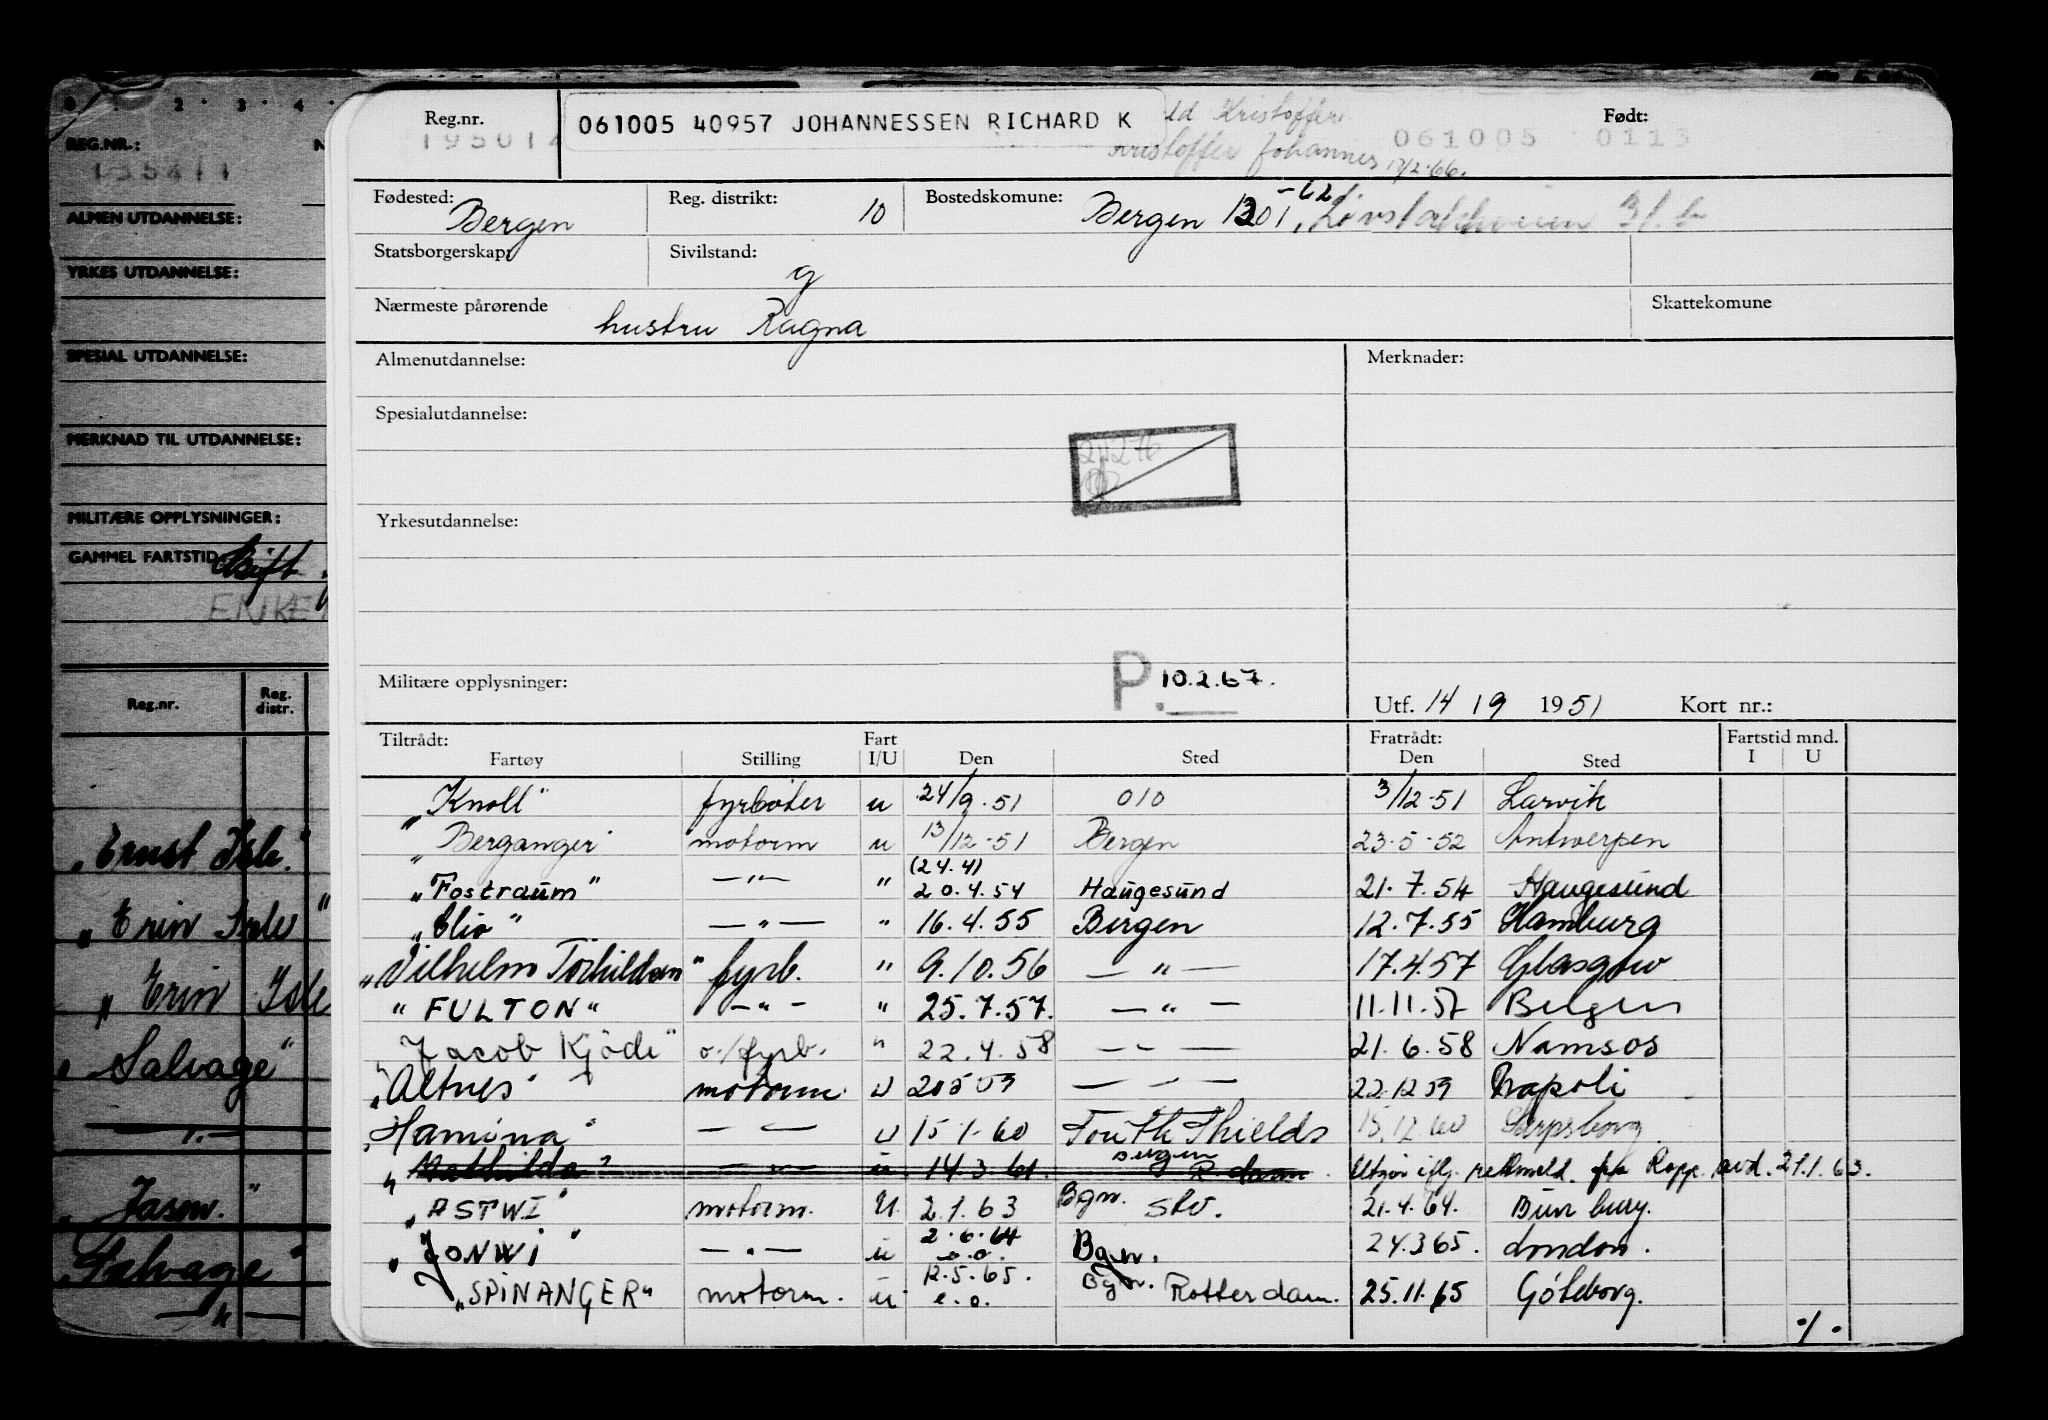 0 2 3 4
REG.NR.:
135411
ALMEN UTDANNELSE:
YRKES UTDANNELSE:
SPESIAL UTDANNELSE:
MERKNAD TIL UTDANNELSE:
MILITÆRE OPPLYSNINGER:
GAMMEL FARTSTID
Gift
ENKE
Reg.nr. Reg. distr.
"Ernst Isle."
"Erin Isle"
"Erin Isle
Salvage"
"Jason."
"Salvage"
— " —
Reg.nr. 061005 40957 JOHANNESSEN RICHARD K Kristoffer Født:
195012 Kristoffer Johannes 17/2-66. 061005 0113
Fødested: Bergen Reg. distrikt: 10 Bostedskomune: Bergen 1301, -62
Statsborgerskap: Sivilstand: g
Nærmeste pårørende hustru Ragna Skattekomune
Almenutdannelse: Merknader:
Spesialutdannelse:
Yrkesutdannelse:
Militære opplysninger: P. 10.2.67. Utf. 14 / 9 1951 Kort nr.:
Tiltrådt: Fart Fratrådt: Fartstid mnd.
Fartøy Stilling I/U Den Sted Den Sted I U
"Knoll" fyrbøter u 24/9-51 010 3/12-51 Larvik
"Berganger motorm u 13/12-51 Bergen 23-5-52 Antwerpen
(24.4)
"Fostraum" — " — " 20.4.54 Haugesund 21.7.54 Haugesund
"Clio" — " — " 16.4.55 Bergen 12.7.55 Hamburg
"Vilhelm Torkildsen" fyrb. " 9.10.56 — " — 17.4.57 Glasgow
"FULTON" — " — " 25.7.57. — " — 11.11.57 Bergen
"Jacob Kjöde" o./fyrb. " 22.4.58 — " — 21.6.58 Namsos
"Altnes" motorm. u 20 5 59 — " — 22.12 59 Napoli
"Hamina" — " — u 15 1-60 South Shields 15.12 60 Sarpsborg
"Mathilda" — " — u 14.3.61. Bergen R.dam. Utgår iflg. Rapp. avd. 21.1.63.
"ASTWI" motorm. u. 2.1.63 Bgn. Stv. 21.4.64. Bunbury.
"JONWI" — " — u 2.6.64 e.o. Bgn. 24.3 65. London.
"SPINANGER" motorm. u 12.5.65. e.o. Bgn. Rotterdam. 25.11.65 Göteborg.
·/·